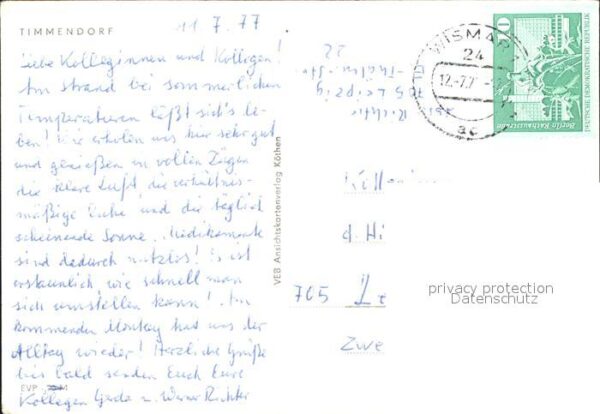 TIMMENDORF
11.7.77
Liebe Kolleginnen und Kollegen!
Am Strand bei sommerlichen
Temperaturen läßt sich's le-
ben! Wir erholen uns hier sehr gut
und genießen in vollen Zügen
die klare Luft die verhältnis-
mäßige Ruhe und die täglich
scheinende Sonne. Medikamente
sind dadurch nutzlos! Es ist
erstaunlich, wie schnell man
sich umstellen kann! Am
kommenden Montag hat uns der
Alltag wieder! Herzliche Grüße
bis bald senden Euch Eure
Kollegen Gerda u. Werner Richter
EVP
VEB Ansichtskartenverlag Köthen
Richter
705 Leipzig
22
WISMAR
24
12.-7.7
ac
10
DEUTSCHE DEMOKRATISCHE REPUBLIK
Berlin
d. Hi
705 Le
Zwe
privacy protection
Datenschutz